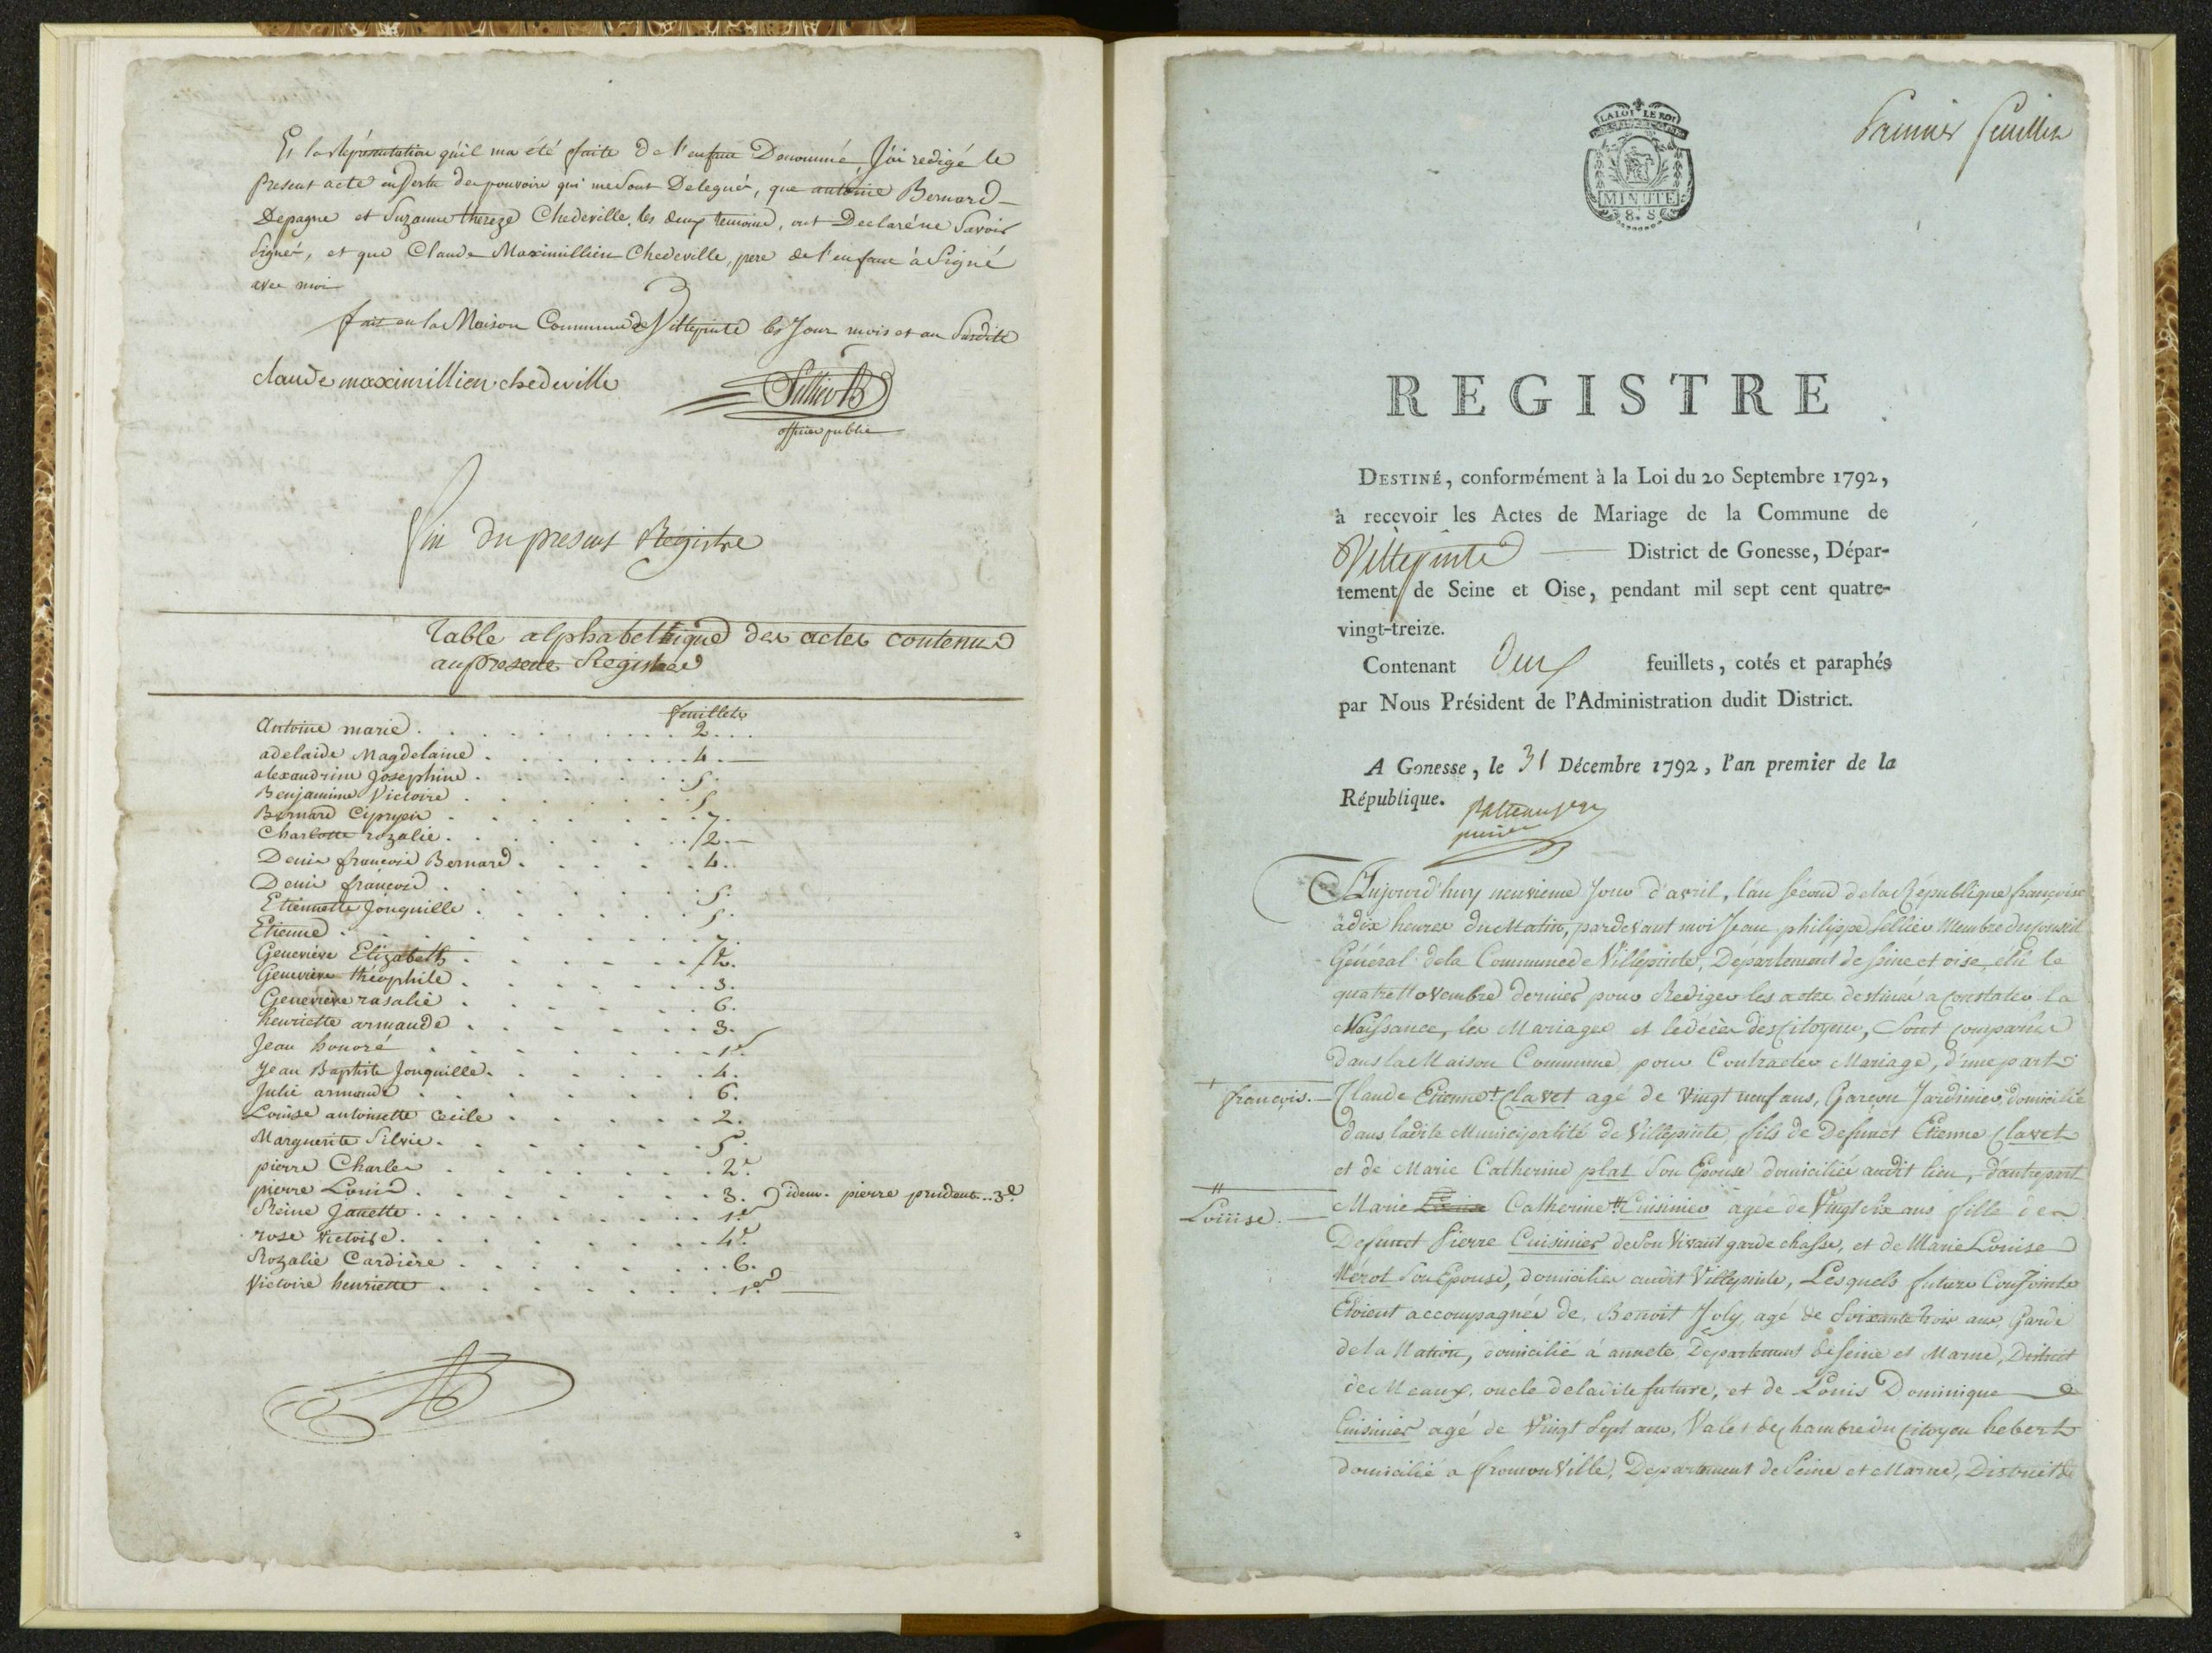 Et la représentation qu'il ma été faite de l'enfant Denommé, J'ai redigé le
Present acte en Vertu des pouvoirs qui me sont Delegués, que antoine Bernard
Depagne et Suzanne thereze Chedeville, les deux temoins, ont Declaré ne Savoir
Signer, et que Claude Maximillien Chedeville, pere de l'enfant à Signé
avec moi
fait en la Maison Commune de Villepinte les Jour mois et an Susdits
claude maximillien chedeville
Sellier
officier public
Fin du present Registre
Table alphabethique des actes contenus
au present Registre
feuillets
Antoine marie . . . 2 . . .
adelaide Magdelaine . . . 4. —
alexandrine Josephine . . . 5.
Benjamine Victoire . . . 5
Bernard Ciprien . . . 7.
Charlotte rozalie . . . 2. —
Denis françois Bernard . . . 4. .
Denis françois . . . 5.
Etiennette Jonquille . . . 5.
Etienne . . . 7.
Geneviève Elizabeth . . . 2.
Geneviève théophile . . . 3.
Geneviève rasalie . . . 6.
henriette armande . . . 3.
Jean honoré . . . 1er
Jean Baptiste Jonquille . . . 4.
Julie armande . . . 6.
Louise antoinette Cecile . . . 2.
Marguerite Silvie . . . 5.
pierre Charles . . . 2e.
pierre Louis . . . 3. idem. pierre prudent . . 3e
Reine Janette . . . 1er
rose Victoire . . . 4e.
Rozalie Cardière . . . 6.
Victoire henriette . . . 1er —
LA LOI LE ROI
MINUTE
8. S
Premier feuillet
REGISTRE
DESTINÉ, conformément à la Loi du 20 Septembre 1792,
à recevoir les Actes de Mariage de la Commune de
Villepinte — District de Gonesse, Dépar-
tement de Seine et Oise, pendant mil sept cent quatre-
vingt-treize.
Contenant Deux feuillets, cotés et paraphés
par Nous Président de l'Administration dudit District.
A Gonesse, le 31 Décembre 1792, l'an premier de la
République.
Aujourd'huy neuvieme Jour d'avril, l'an Second de la République françoise
à dix heures du Matin, pardevant moi Jean philippe Sellier Membre du Conseil
Général de la Commune de Villepinte, Département de Seine et oise, élû le
quatre Novembre dernier pour Rediger les actes destinés a Constater la
Naissance, les Mariages et le décès des Citoyens, Sont comparus
dans la Maison Commune pour Contracter Mariage, d'une part
françois. — Claude Etienne + Clavet agé de Vingt neuf ans, Garçon Jardinier, domicilié
dans ladite Municipalité de Villepinte, fils de Defunct Etienne Clavet
et de Marie Catherine plat Son Epouse domiciliée audit lieu, d'autre part
Loüise. — Marie Louise Catherine # Cuisinier agée de Vingt Six ans fille de
Defunct Pierre Cuisinier de Son Vivant garde chasse, et de Marie Louise
Mérot Son Epouse, domiciliée audit Villepinte, Lesquels futurs Conjoints
Etoient accompagnés de Benoit Joly agé de Soixante trois ans, Garde
de la Nation, domicilié à annete Departement de Seine et Marne, District
de Meaux, oncle de ladite future, et de Louis Dominique
Cuisinier agé de Vingt Sept ans, Valet de Chambre du Citoyen hebert
domicilié a fromonville, Departement de Seine et Marne, District de